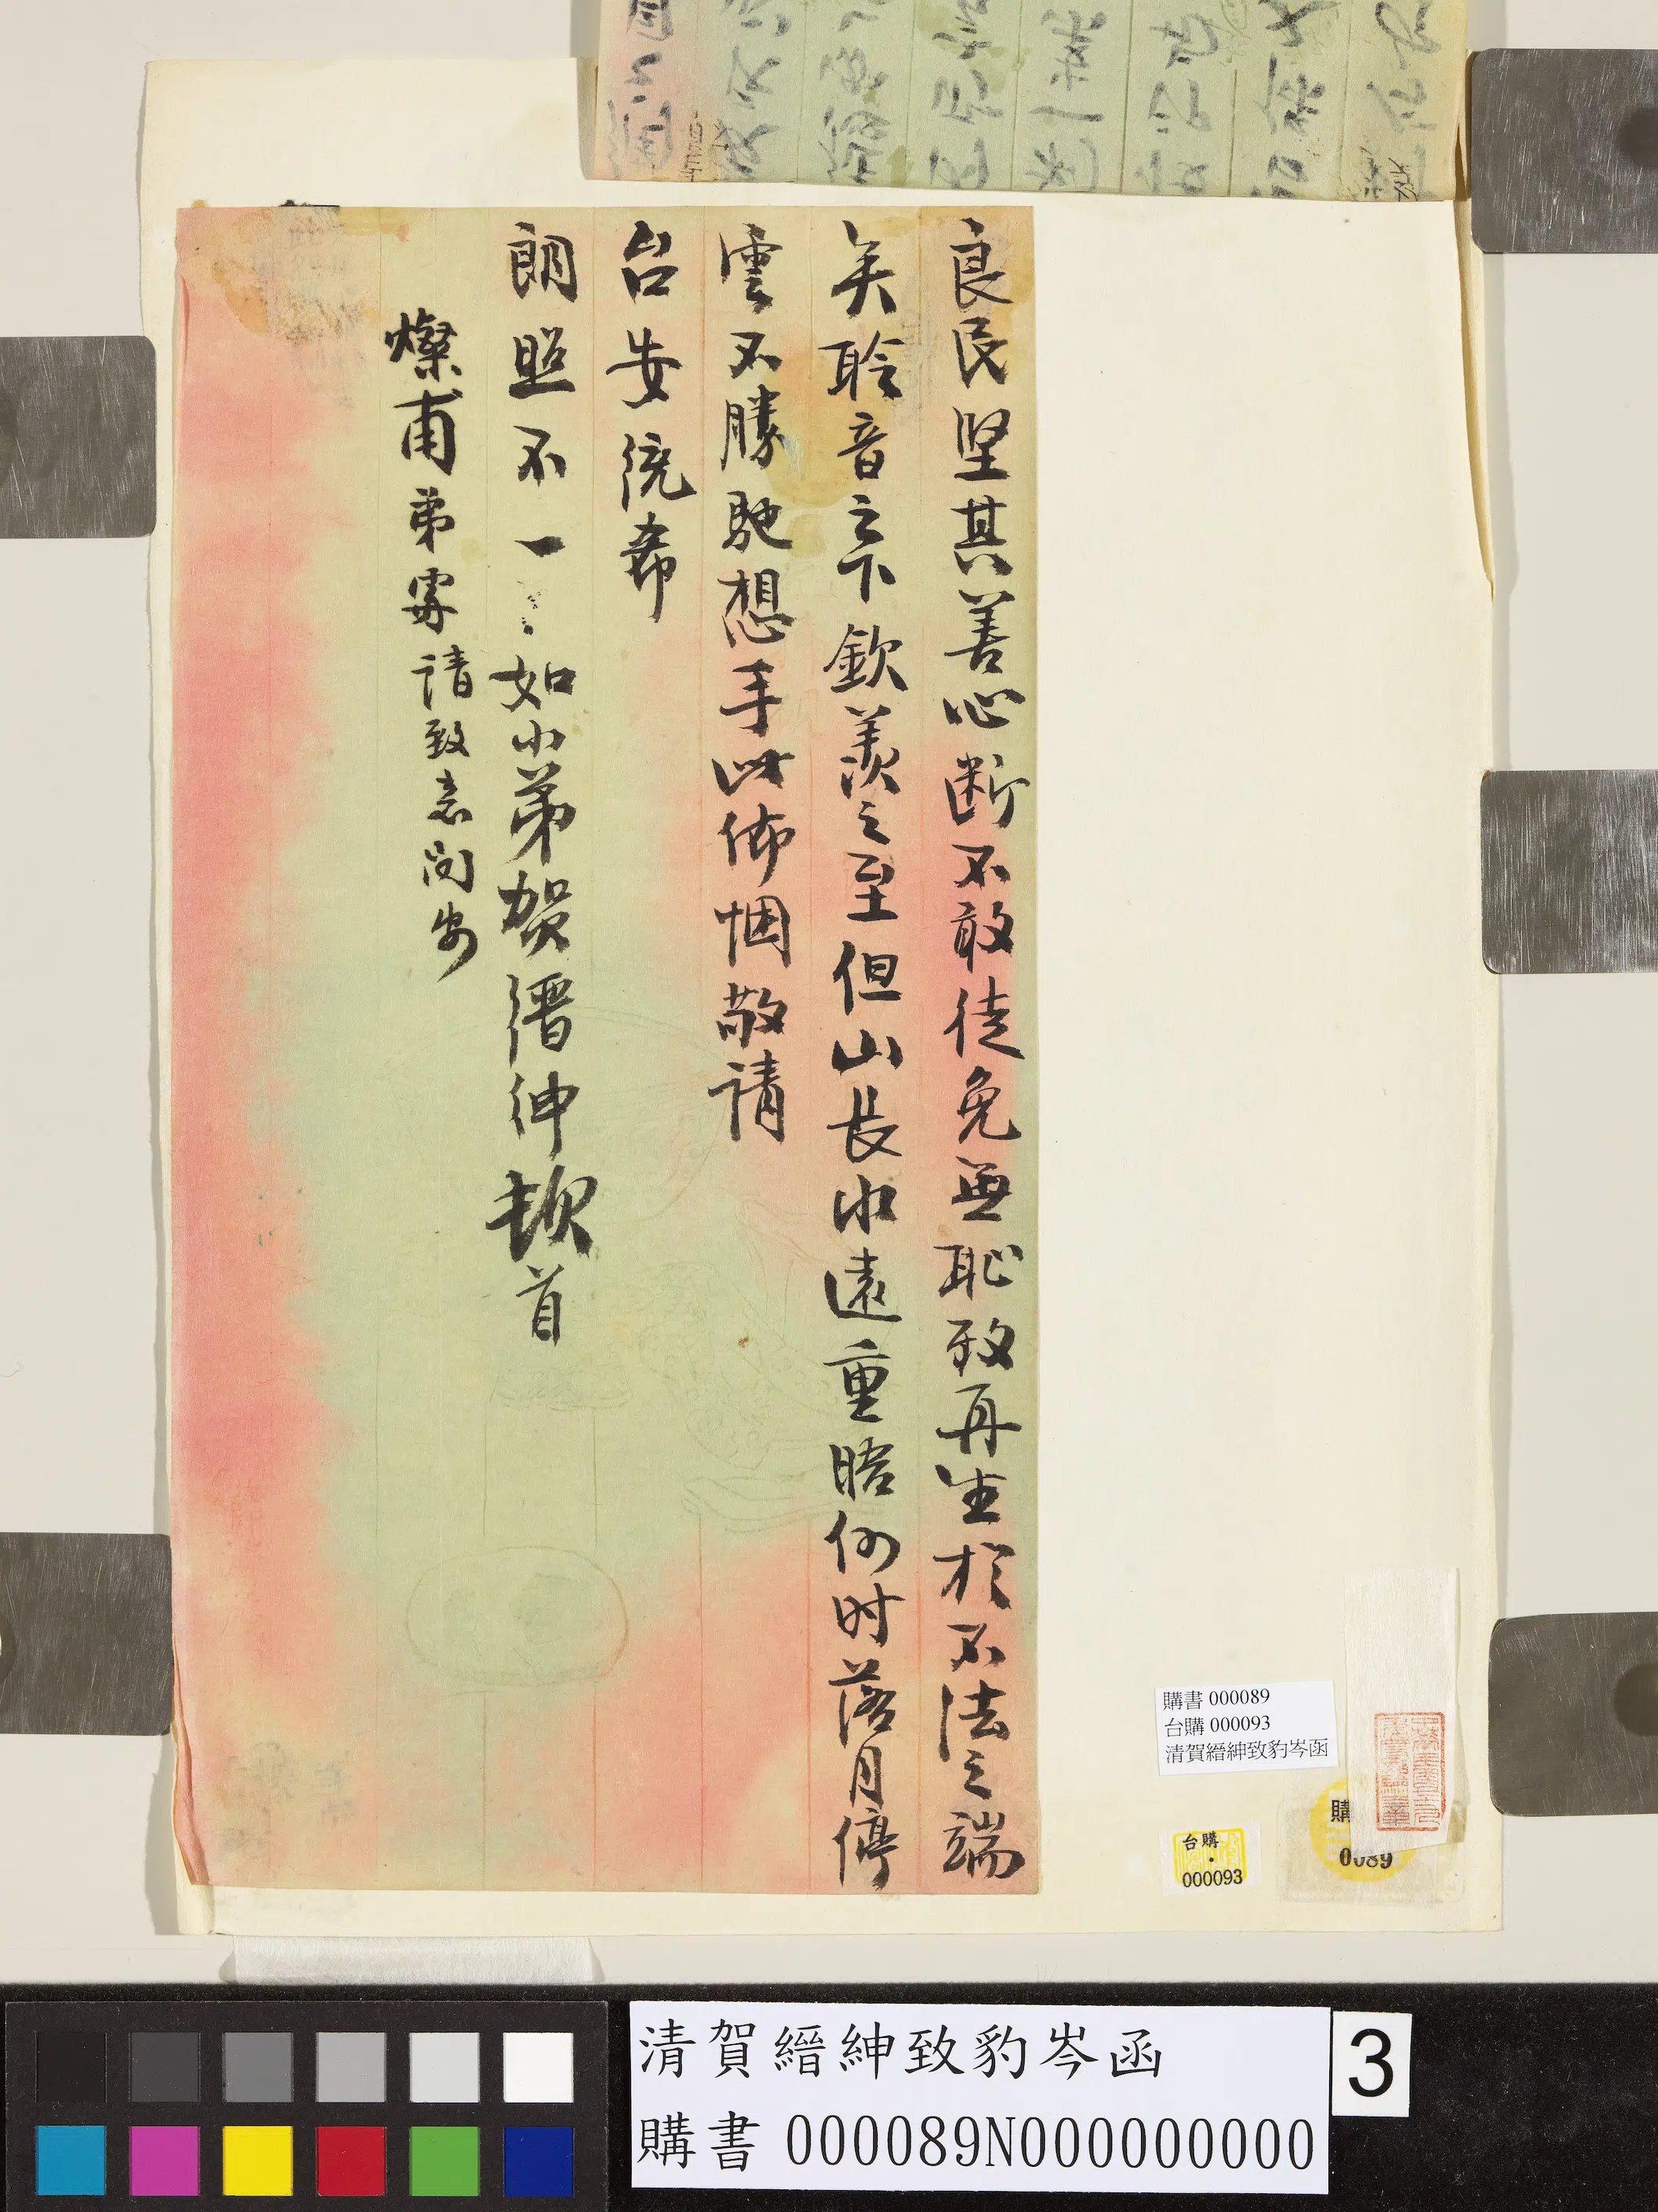 良民坚其善心断不敢徒免無恥致再生於不法之端
矣聆音之下欽羨之至但山長水遠重晤何时落月停
雲不勝馳想手此佈悃敬請
台安統希
朗照不一
如小弟賀縉紳頓首
燦甫弟處請致意問安
購書 000089
台購 000093
清賀縉紳致豹岑函
台購
000093
購
0089
清賀縉紳致豹岑函
購書 000089N000000000
3